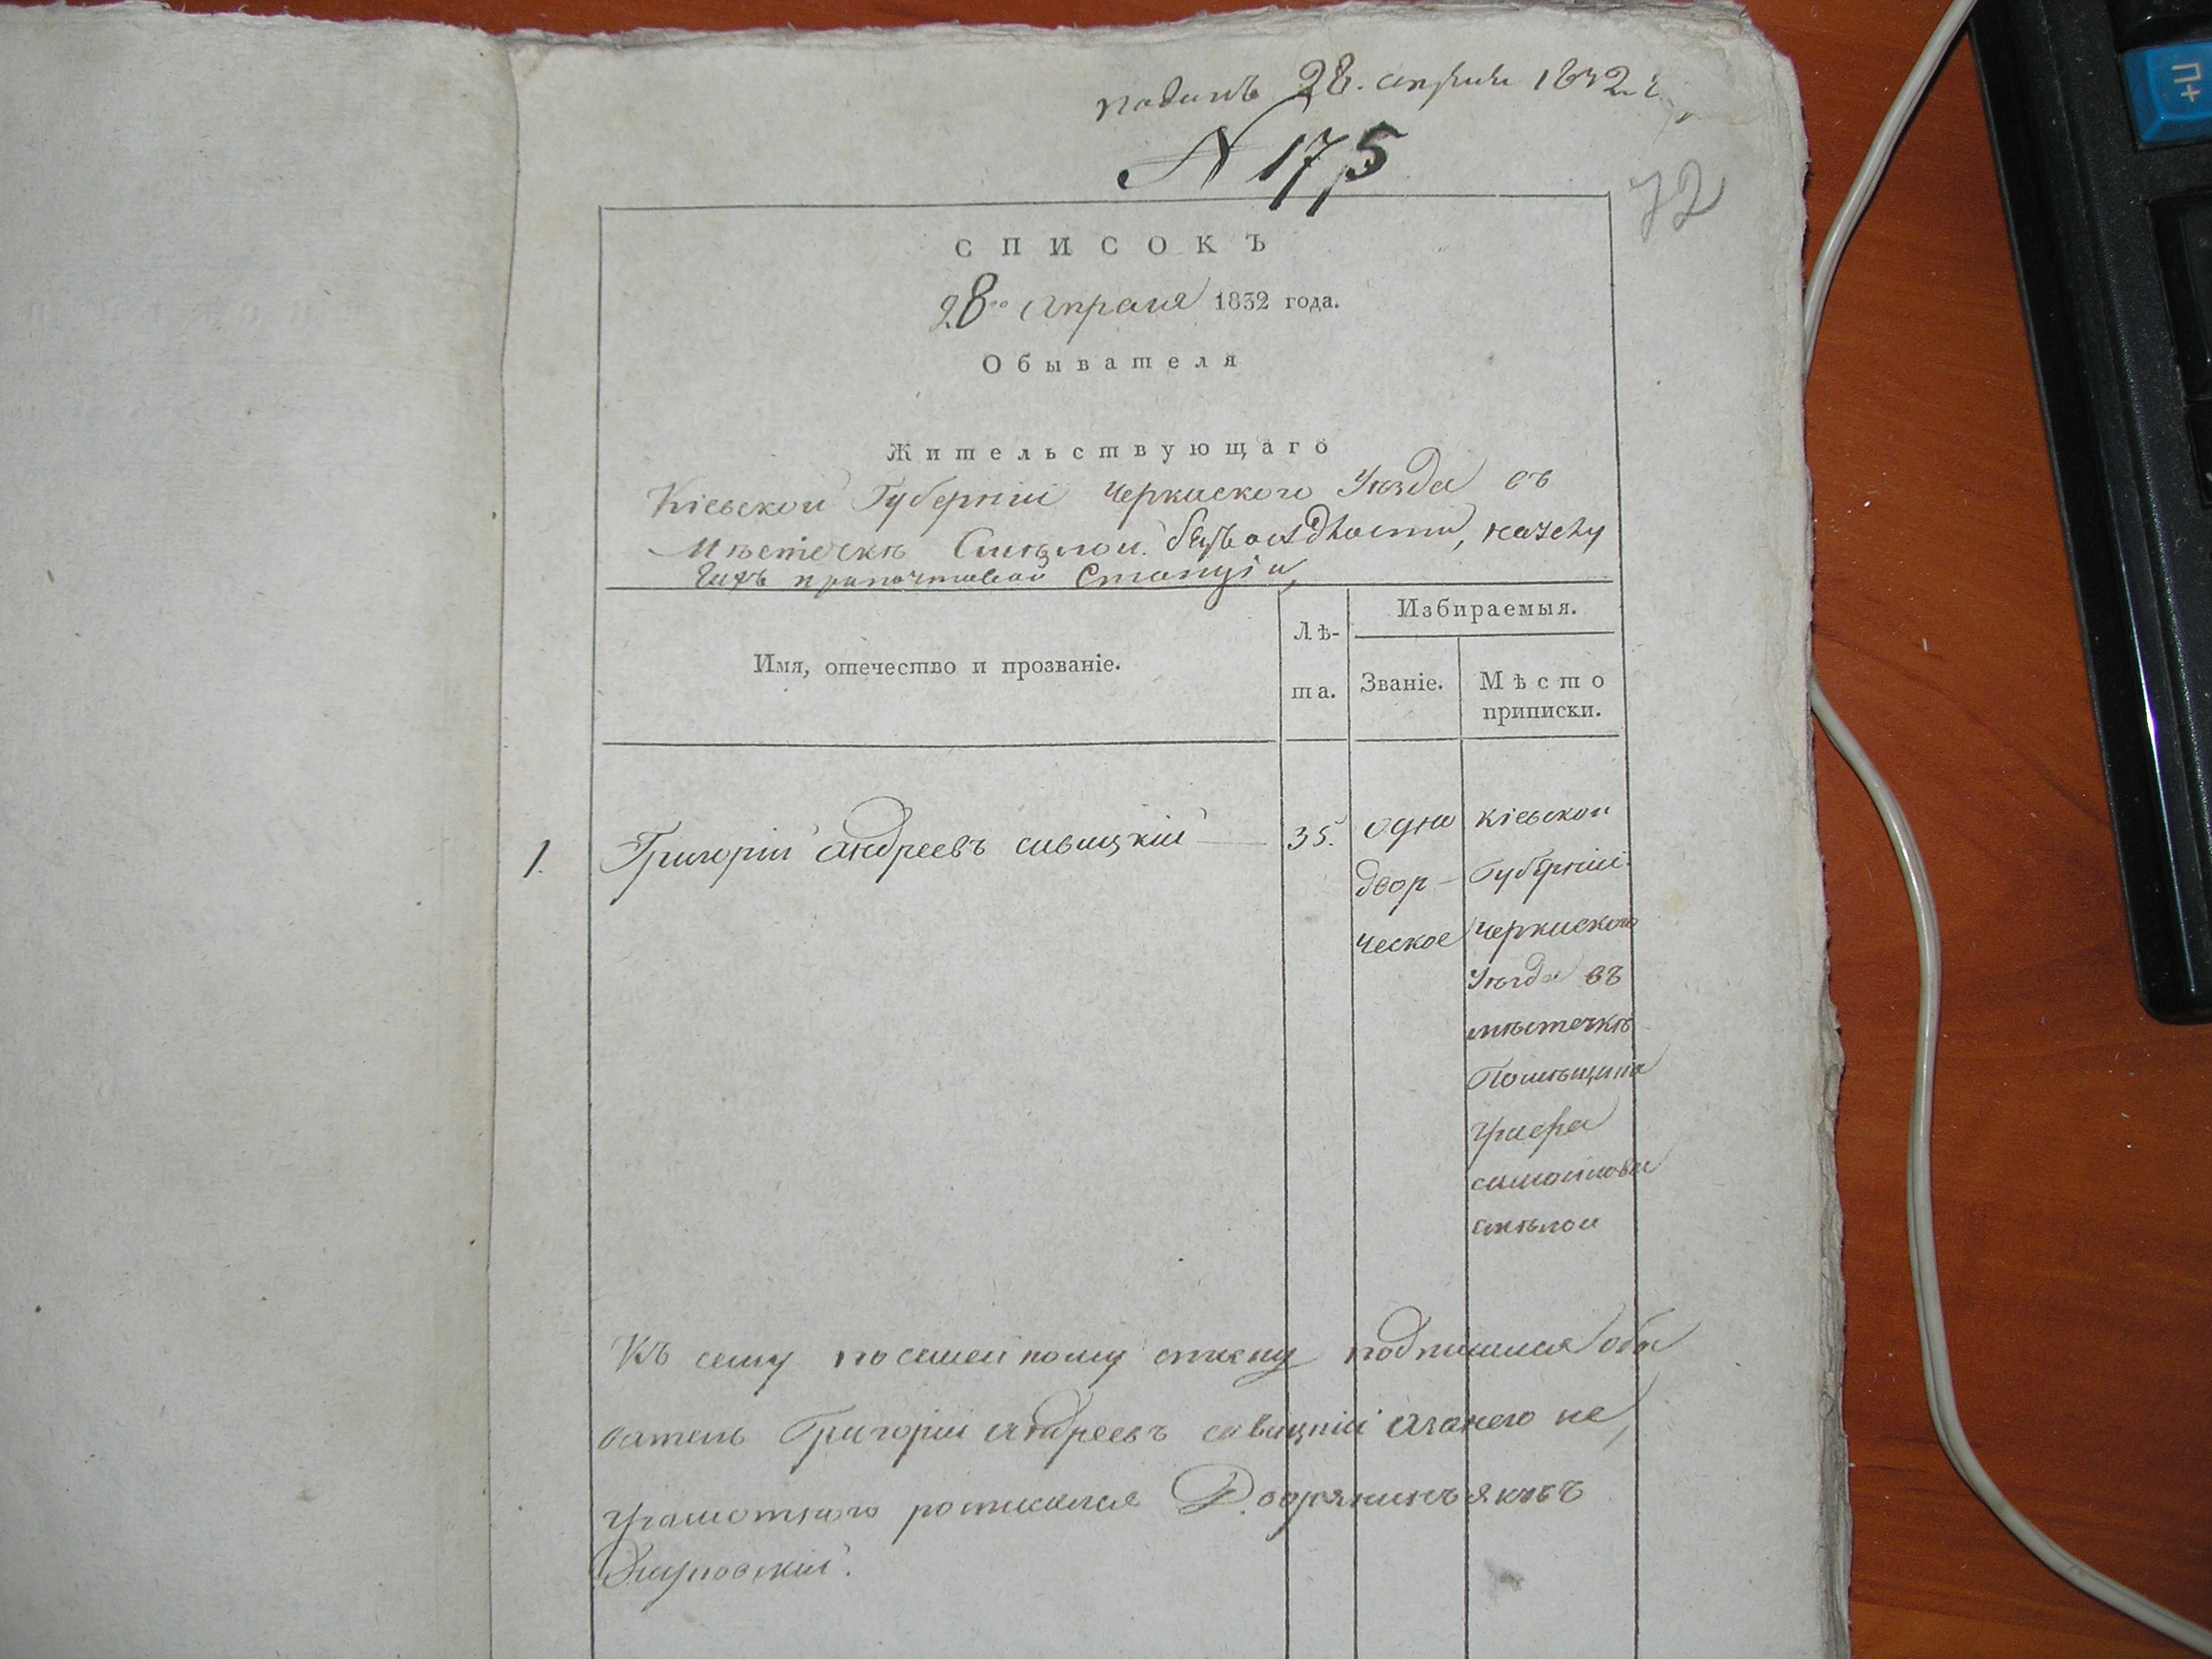 поданъ 28. апреля 1832. г.
N 175
72
СПИСОКЪ
28го Апреля 1832 года.
Обывателя
Жительствующаго
Кіевской Губерніи Черкаского Уезда въ
Мѣстечкѣ Смѣлой. безъ оседлости,
при почтовой Станціи,
Имя, отечество и прозваніе.
Лѣ-
та.
Избираемыя.
Званіе.
Мѣсто
приписки.
1. Григорій Андреевъ Савицкій
35.
одно
двор-
ческое
Кіевской
Губерніи
Черкаского
Уезда въ
мѣстечкѣ
Помѣщика
Графа
Самойлова
Смѣлой
Къ сему посемейному списку подписался обы
ватель Григорій Андреевъ Савицкій а за него не
грамотного росписался Дворянинъ Яковъ